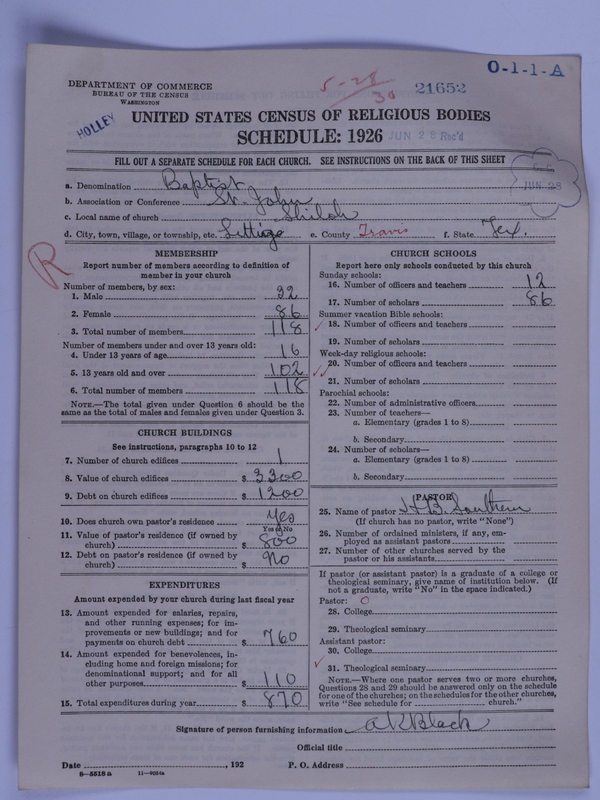 0-1-1-A
5-28
30
21652
DEPARTMENT OF COMMERCE
BUREAU OF THE CENSUS
WASHINGTON
HOLLEY
UNITED STATES CENSUS OF RELIGIOUS BODIES
SCHEDULE: 1926
JUN 28 Rec'd
FILL OUT A SEPARATE SCHEDULE FOR EACH CHURCH. SEE INSTRUCTIONS ON THE BACK OF THIS SHEET
JUN 28
a. Denomination Baptist
b. Association or Conference St. John
c. Local name of church Shiloh
d. City, town, village, or township, etc. e. County Travis f. State Tex.
R
MEMBERSHIP
Report number of members according to definition of
member in your church
Number of members, by sex:
1. Male 32
2. Female 86
3. Total number of members 118
Number of members under and over 13 years old:
4. Under 13 years of age 16
5. 13 years old and over 102
6. Total number of members 118
NOTE.—The total given under Question 6 should be the
same as the total of males and females given under Question 3.
CHURCH BUILDINGS
See instructions, paragraphs 10 to 12
7. Number of church edifices 1
8. Value of church edifices $ 3300
9. Debt on church edifices $ 1200
10. Does church own pastor's residence yes
Yes or No
11. Value of pastor's residence (if owned by
church) $ 800
12. Debt on pastor's residence (if owned by
church) $ No
EXPENDITURES
Amount expended by your church during last fiscal year
13. Amount expended for salaries, repairs,
and other running expenses; for im-
provements or new buildings; and for
payments on church debt $ 760
14. Amount expended for benevolences, in-
cluding home and foreign missions; for
denominational support; and for all
other purposes $ 110
15. Total expenditures during year $ 870
CHURCH SCHOOLS
Report here only schools conducted by this church
Sunday schools:
16. Number of officers and teachers 12
17. Number of scholars 86
Summer vacation Bible schools:
18. Number of officers and teachers
19. Number of scholars
Week-day religious schools:
20. Number of officers and teachers
21. Number of scholars
Parochial schools:
22. Number of administrative officers
23. Number of teachers—
a. Elementary (grades 1 to 8)
b. Secondary
24. Number of scholars—
a. Elementary (grades 1 to 8)
b. Secondary
PASTOR
25. Name of pastor H B. Southern
(If church has no pastor, write "None")
26. Number of ordained ministers, if any, em-
ployed as assistant pastors
27. Number of other churches served by the
pastor or his assistants
If pastor (or assistant pastor) is a graduate of a college or
theological seminary, give name of institution below. (If
not a graduate, write "No" in the space indicated.)
Pastor: 0
28. College
29. Theological seminary
Assistant pastor:
30. College
31. Theological seminary
NOTE.—Where one pastor serves two or more churches,
Questions 28 and 29 should be answered only on the schedule
for one of the churches; on the schedules for the other churches,
write "See schedule for church."
Signature of person furnishing information A K Black
Official title
Date , 192 P. O. Address
8—5518 a 11—9024a